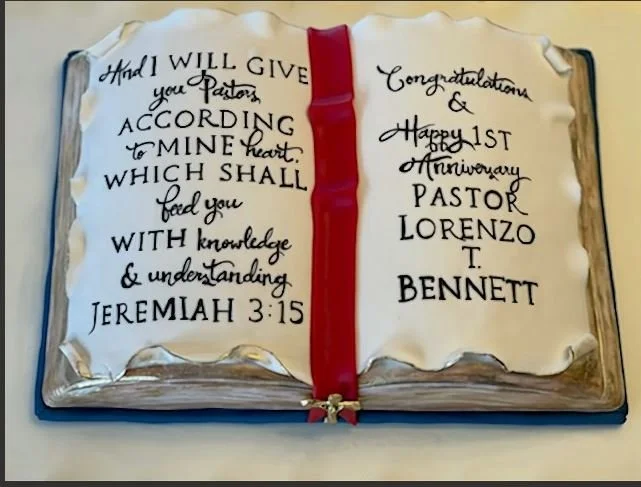 And I WILL GIVE
you Pastors
ACCORDING
to MINE heart.
WHICH SHALL
feed you
WITH knowledge
& understanding
JEREMIAH 3:15
Congratulations
&
Happy 1ST
Anniversary
PASTOR
LORENZO
T.
BENNETT